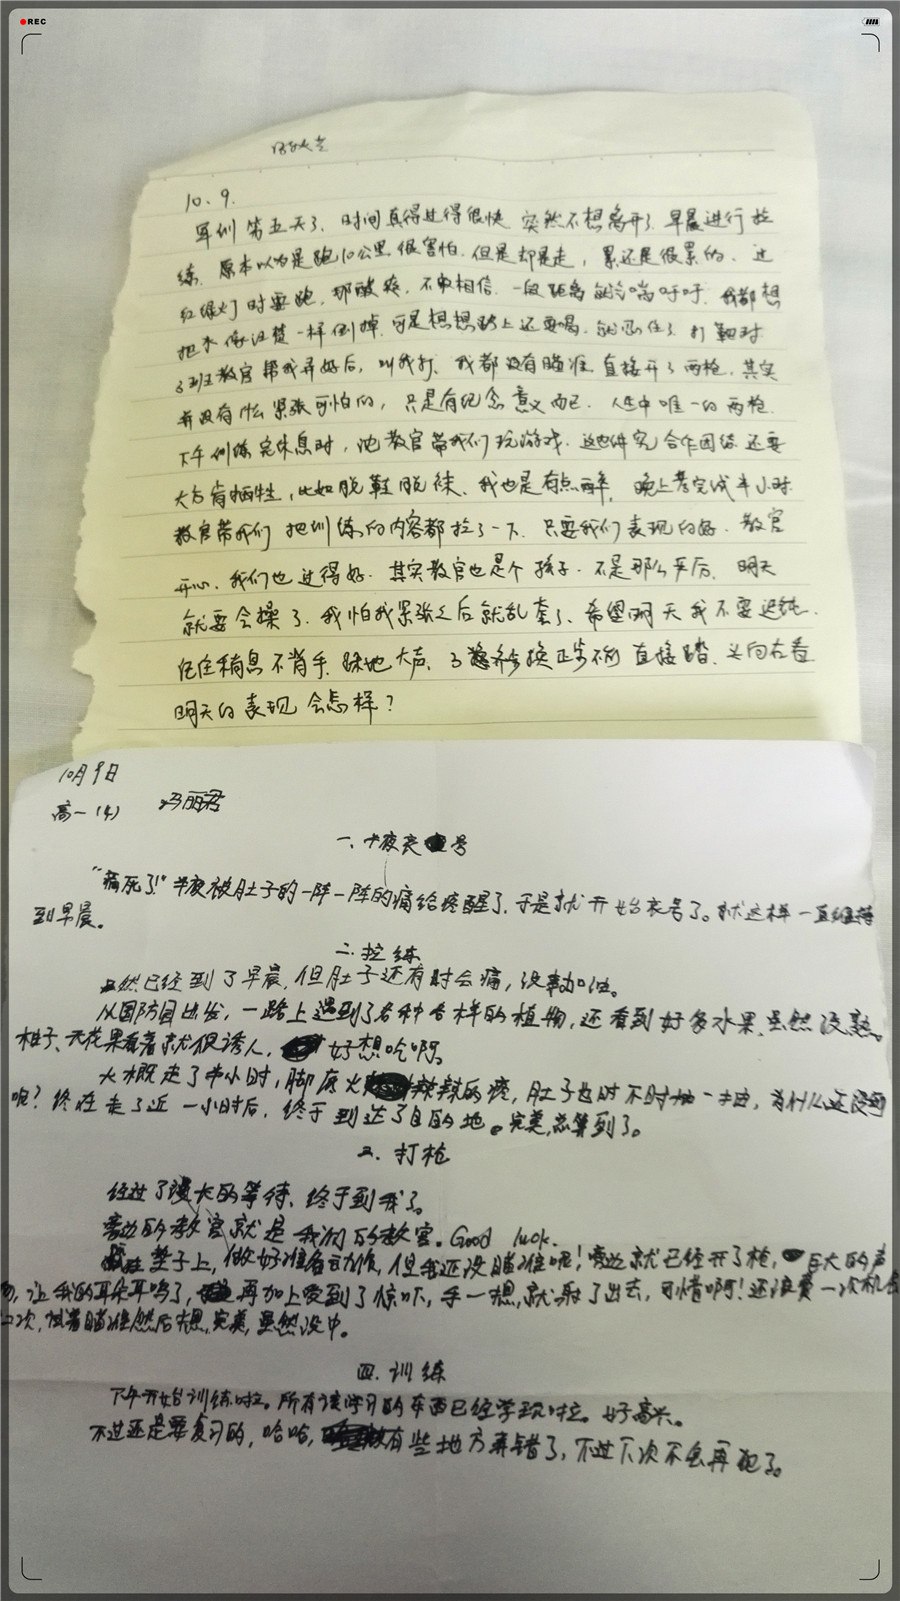 REC
10、9.
军训第五天了、时间真得过得很快 突然不想离开了 早晨进行拉
练、原本以为是跑10公里 很害怕、但是却是走，累还是很累的、过
红绿灯时要跑，那酸疼，不敢相信、一段距离 气喘吁吁、我都想
把水 一样倒掉、可是想想路上还要喝、忍住了、打靶时
3班教官帮我弄好后，叫我打、我都没有瞄准 直接开了两枪、其实
并没有什么紧张可怕的，只是有纪念意义而已、人生中唯一的两枪、
下午训练完休息时，池教官带我们玩游戏、 合作团结 还要
大方肯牺牲，比如脱鞋脱袜、我也是有点醉， 晚上 半小时、
教官带我们 把训练的内容都拉了一下、只要我们表现的好、教官
开心、我们也过得好、其实教官也是个孩子、不是那么严厉、明天
就要会操了、我怕我紧张之后就乱套了、希望明天我不要迟钝、
记住稍息不背手、 大声、 齐步换正步 直接踏、 向右看
明天的表现会怎样？
10月9日
高一（4） 冯丽君
一、半夜哀号
“痛死了！”半夜被肚子的一阵一阵的痛给疼醒了、于是就开始哀号了。就这样一直维持
到早晨。
二、拉练
虽然已经到了早晨，但肚子还有时会痛，没事加油。
从国防园出发，一路上遇到了各种各样的植物，还看到好多水果、虽然没熟。
柚子、无花果看着就很诱人， 好想吃啊。
大概走了半小时，脚底火辣辣的疼，肚子也时不时 一抽，为什么还没到
呢？终在走了近一小时后，终于到达了目的地。完美，总算到了。
三、打枪
经过了漫长的等待、终于到我了。
旁边的教官就是我们的教官。Good luck.
趴在垫子上，做好准备动作，但我还没瞄准呢！旁边就已经开了枪， 巨大的声
响，让我的耳朵耳鸣了， 再加上受到了惊吓，手一 ，就射了出去，可惜啊！还浪费一次机会
二次，试着瞄准然后 ，完美，虽然没中。
四、训练
下午开始训练啦。所有该学习的东西已经学现啦。好高兴。
不过还是要复习的，哈哈， 有些地方弄错了，不过下次不会再犯了。